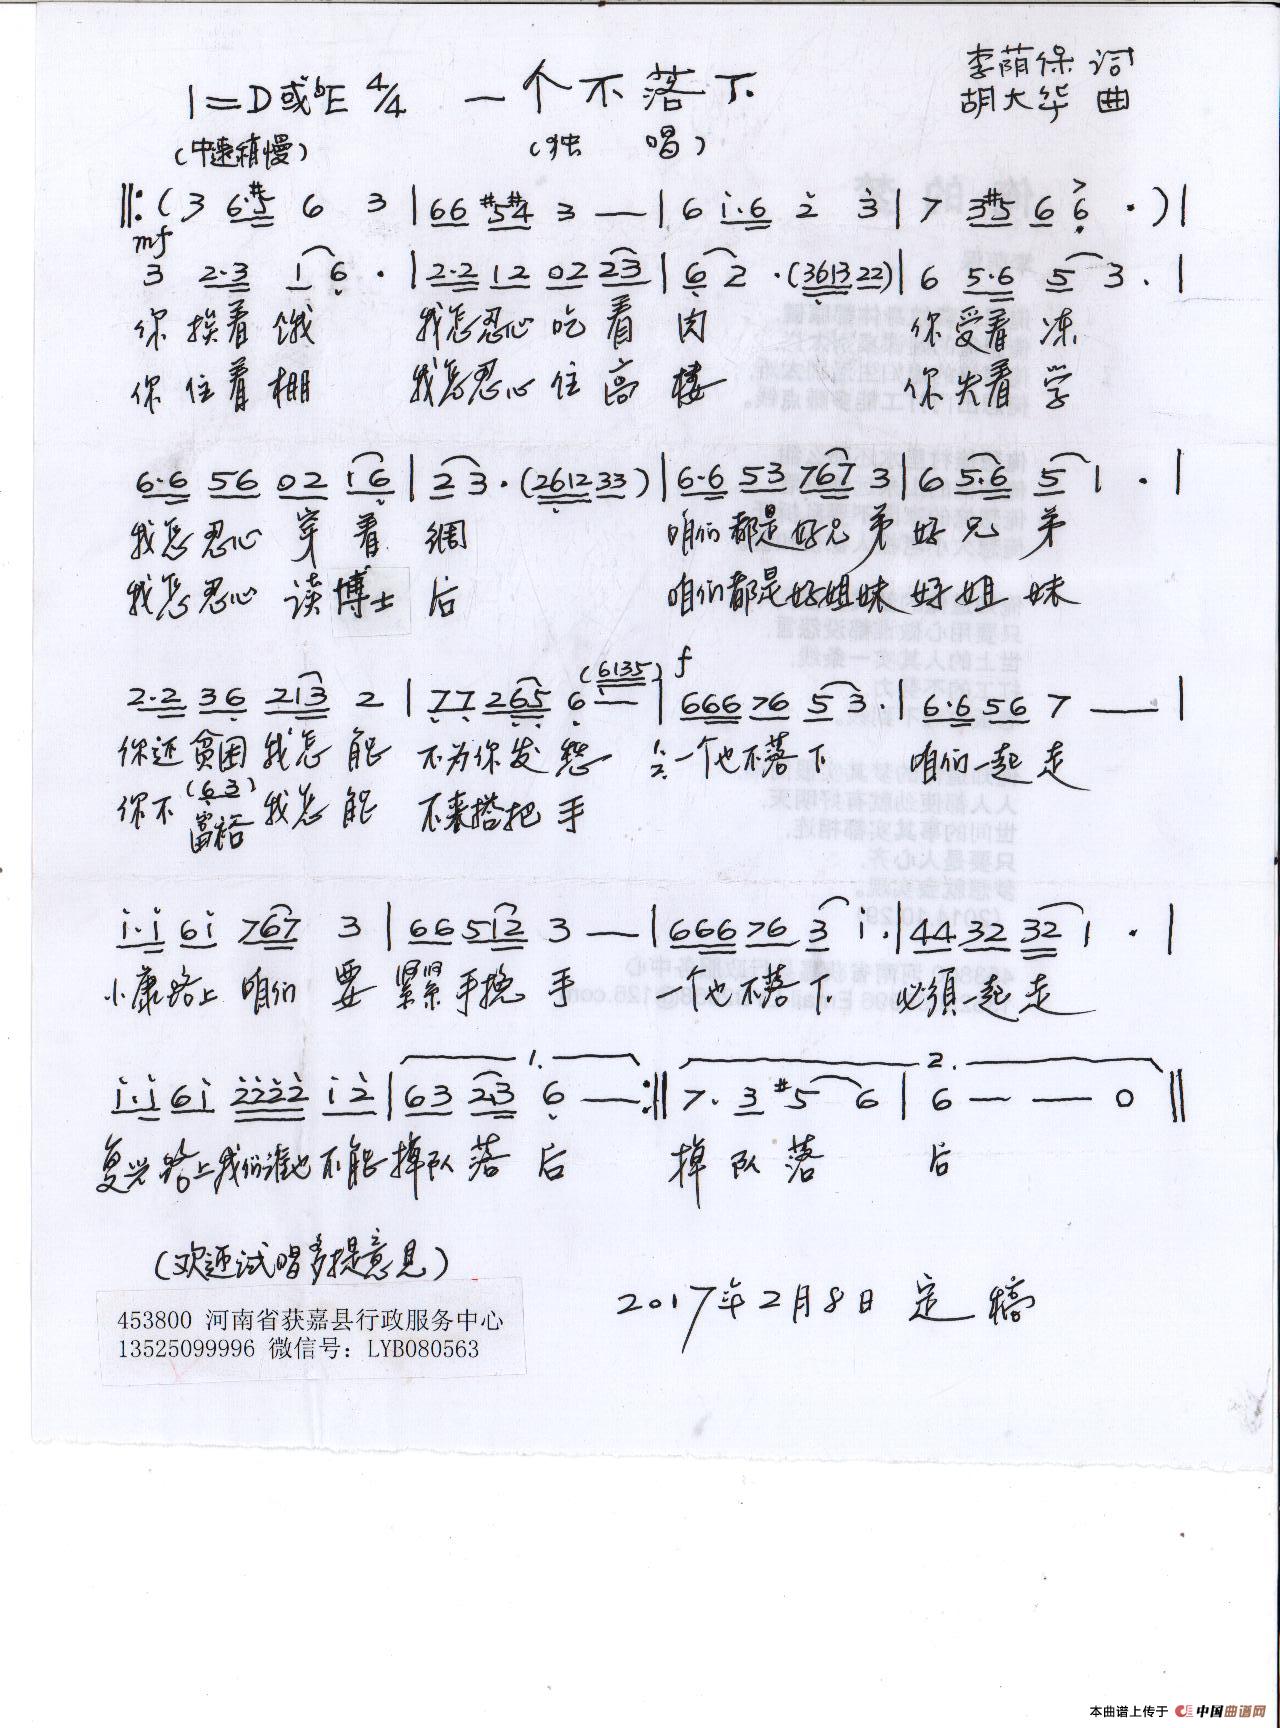 1=D或♭E 4/4 一个不落下 李荫保 词
胡大华 曲
(中速稍慢) (独 唱)
‖:(3 6·#5 6 3 | 66 #5#4 3 — | 6 i·6 2 3 | 7 3#5 6 6 · )|
mf
3 2·3 1 6 · | 2·2 12 02 23 | 6 2 ·(361322)| 6 5·6 5 3 · |
你 挨着 饿 我怎忍心 吃 着 肉 你受着 冻
你 住着 棚 我怎忍心 住 高 楼 你失着 学
6·6 56 02 16 | 2 3 ·(261233) | 6·6 53 767 3 | 6 5·6 5 1 · |
我怎忍心 穿 着 绸 咱们都是好兄弟 好 兄 弟
我怎忍心 读博士后 咱们都是好姐妹 好 姐 妹
(6135) f
2·2 36 213 2 | 77 265 6 — | 66676 5 3 · | 6·6 56 7 — |
你还贫困 我怎 能 不为你发愁 1.2.一个也不落下 咱们一起走
(63)
你不富裕 我怎 能 不来搭把手
i·i 6i 767 3 | 66 512 3 — | 66676 3 i · | 44 32 32 1 · |
小康路上 咱们 要 紧紧手挽 手 一个也不落下 必须一起走
1. 2.
i·i 6i 2222 i2 | 63 23 6 — :‖ 7· 3 #5 6 | 6 — — 0 ‖
复兴路上我们谁也不能掉队 落 后 掉 队 落 后
(欢迎试唱多提意见)
2017年2月8日 定稿
453800 河南省获嘉县行政服务中心
13525099996 微信号：LYB080563
本曲谱上传于 中国曲谱网